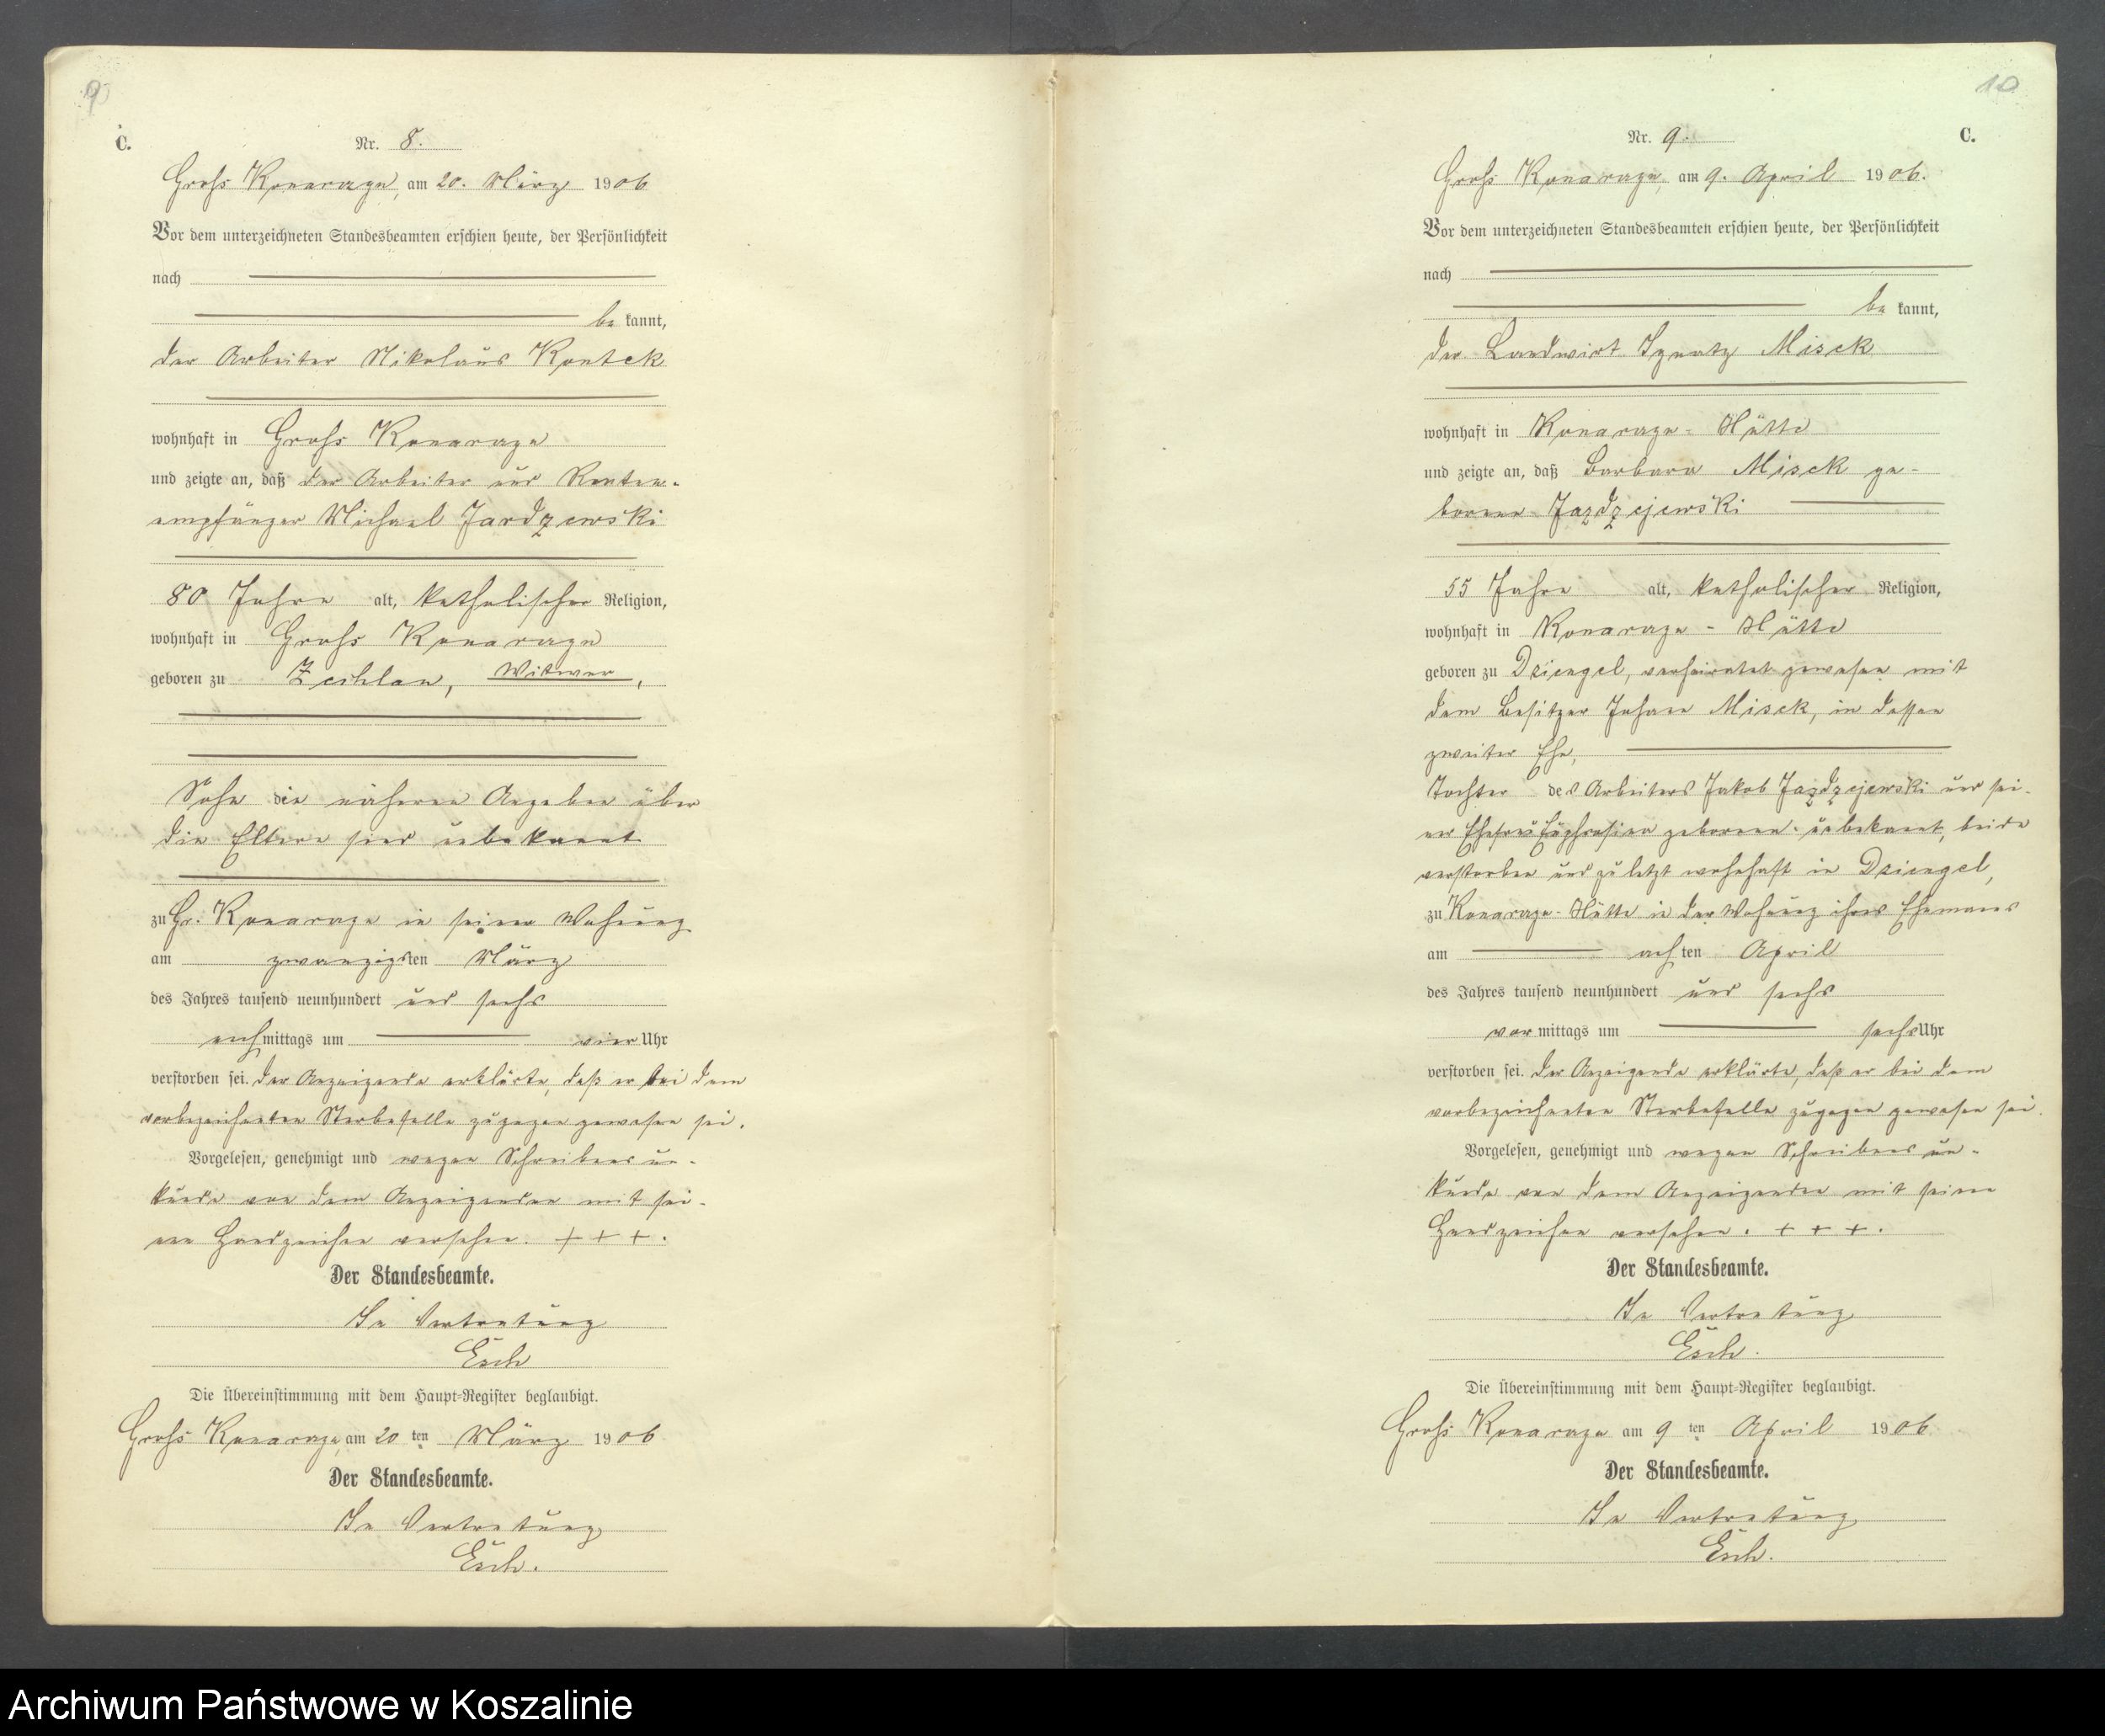 9
C.
Nr. 8.
Groß Konarczyn, am 20. März 1906
Vor dem unterzeichneten Standesbeamten erschien heute, der Persönlichkeit
nach
be kannt,
der Arbeiter Nikolaus Kontek
wohnhaft in Groß Konarczyn
und zeigte an, daß der Arbeiter und Renten-
empfänger Michael Jardzewski
80 Jahre alt, katholischer Religion,
wohnhaft in Groß
geboren zu Witwer,
Sohn die näheren Angaben über
die Eltern sind unbekannt
zu Gr. in seiner Wohnung
am zwanzigsten März
des Jahres tausend neunhundert und sechs
nachmittags um vier Uhr
verstorben sei. Der Anzeigende erklärte, daß er bei dem
vorbezeichneten Sterbefalle zugegen gewesen sei.
Vorgelesen, genehmigt und wegen Schreibens un-
kunde von dem Anzeigenden mit sei-
nen Handzeichen versehen. + + +.
Der Standesbeamte.
In Vertretung
Esch
Die Übereinstimmung mit dem Haupt-Register beglaubigt.
Groß am 20 ten März 1906
Der Standesbeamte.
In Vertretung
Esch.
10
Nr. 9. C.
Groß am 9. April 1906.
Vor dem unterzeichneten Standesbeamten erschien heute, der Persönlichkeit
nach
be kannt,
der Landwirt Ignatz Misek
wohnhaft in Hütte
und zeigte an, daß Barbara Misek ge-
borene Jazdzejewski
55 Jahre alt, katholischer Religion,
wohnhaft in Hütte
geboren zu Dziengel, verheiratet gewesen mit
dem Besitzer Johann Misek, in dessen
zweiter Ehe,
Tochter des Arbeiters Jakob Jazdzejewski und sei-
ner Ehefrau Euphrosina geborene unbekannt, beide
verstorben und zuletzt wohnhaft in Dziengel,
zu Hütte in der Wohnung ihres Ehemanns
am achten April
des Jahres tausend neunhundert und sechs
vormittags um sechs Uhr
verstorben sei. Der Anzeigende erklärte, daß er bei dem
vorbezeichneten Sterbefalle zugegen gewesen sei.
Vorgelesen, genehmigt und wegen Schreibens un-
kunde von dem Anzeigenden mit seinen
Handzeichen versehen. + + +.
Der Standesbeamte.
In Vertretung
Esch.
Die Übereinstimmung mit dem Haupt-Register beglaubigt.
Groß am 9 ten April 1906
Der Standesbeamte.
In Vertretung
Esch.
Archiwum Państwowe w Koszalinie